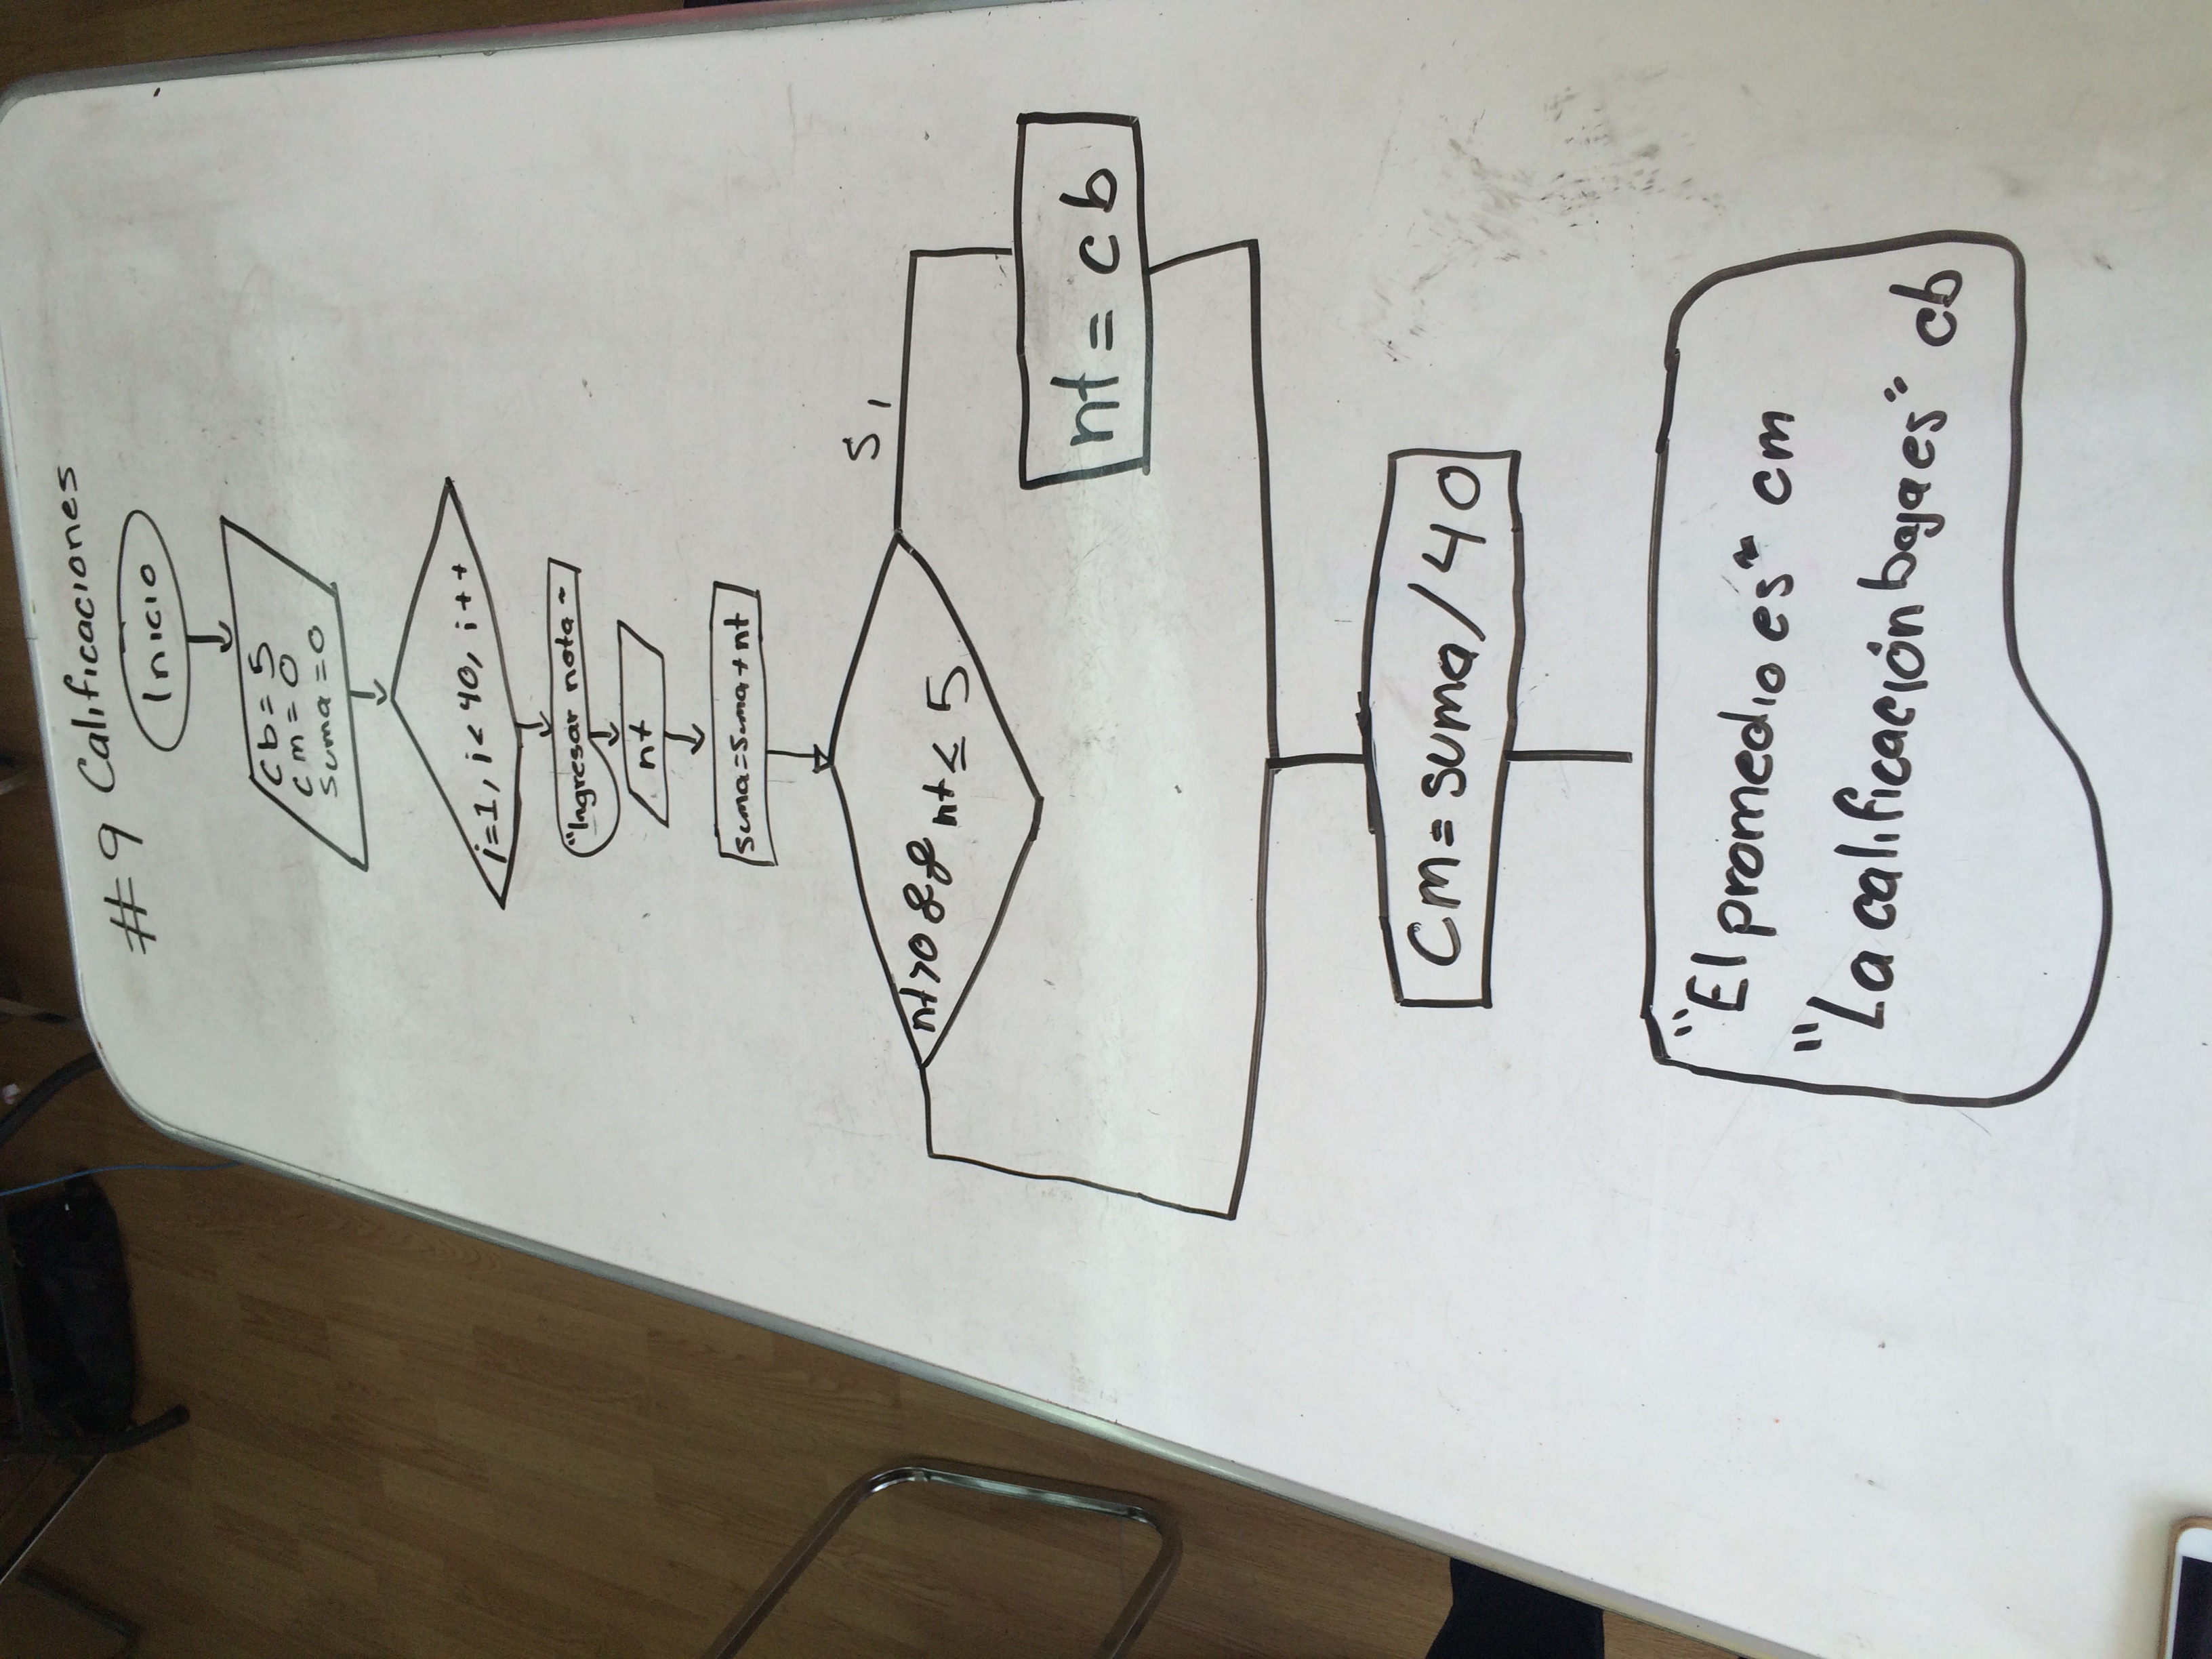 #9 Calificaciones
Inicio
cb=5
cm=0
suma=0
i=1, i<40, i++
"Ingresar nota"
nt
suma=suma+nt
nt>0 && nt≤5
Si
nt=cb
Cm=suma/40
"El promedio es" cm
"La calificación baja es" cb